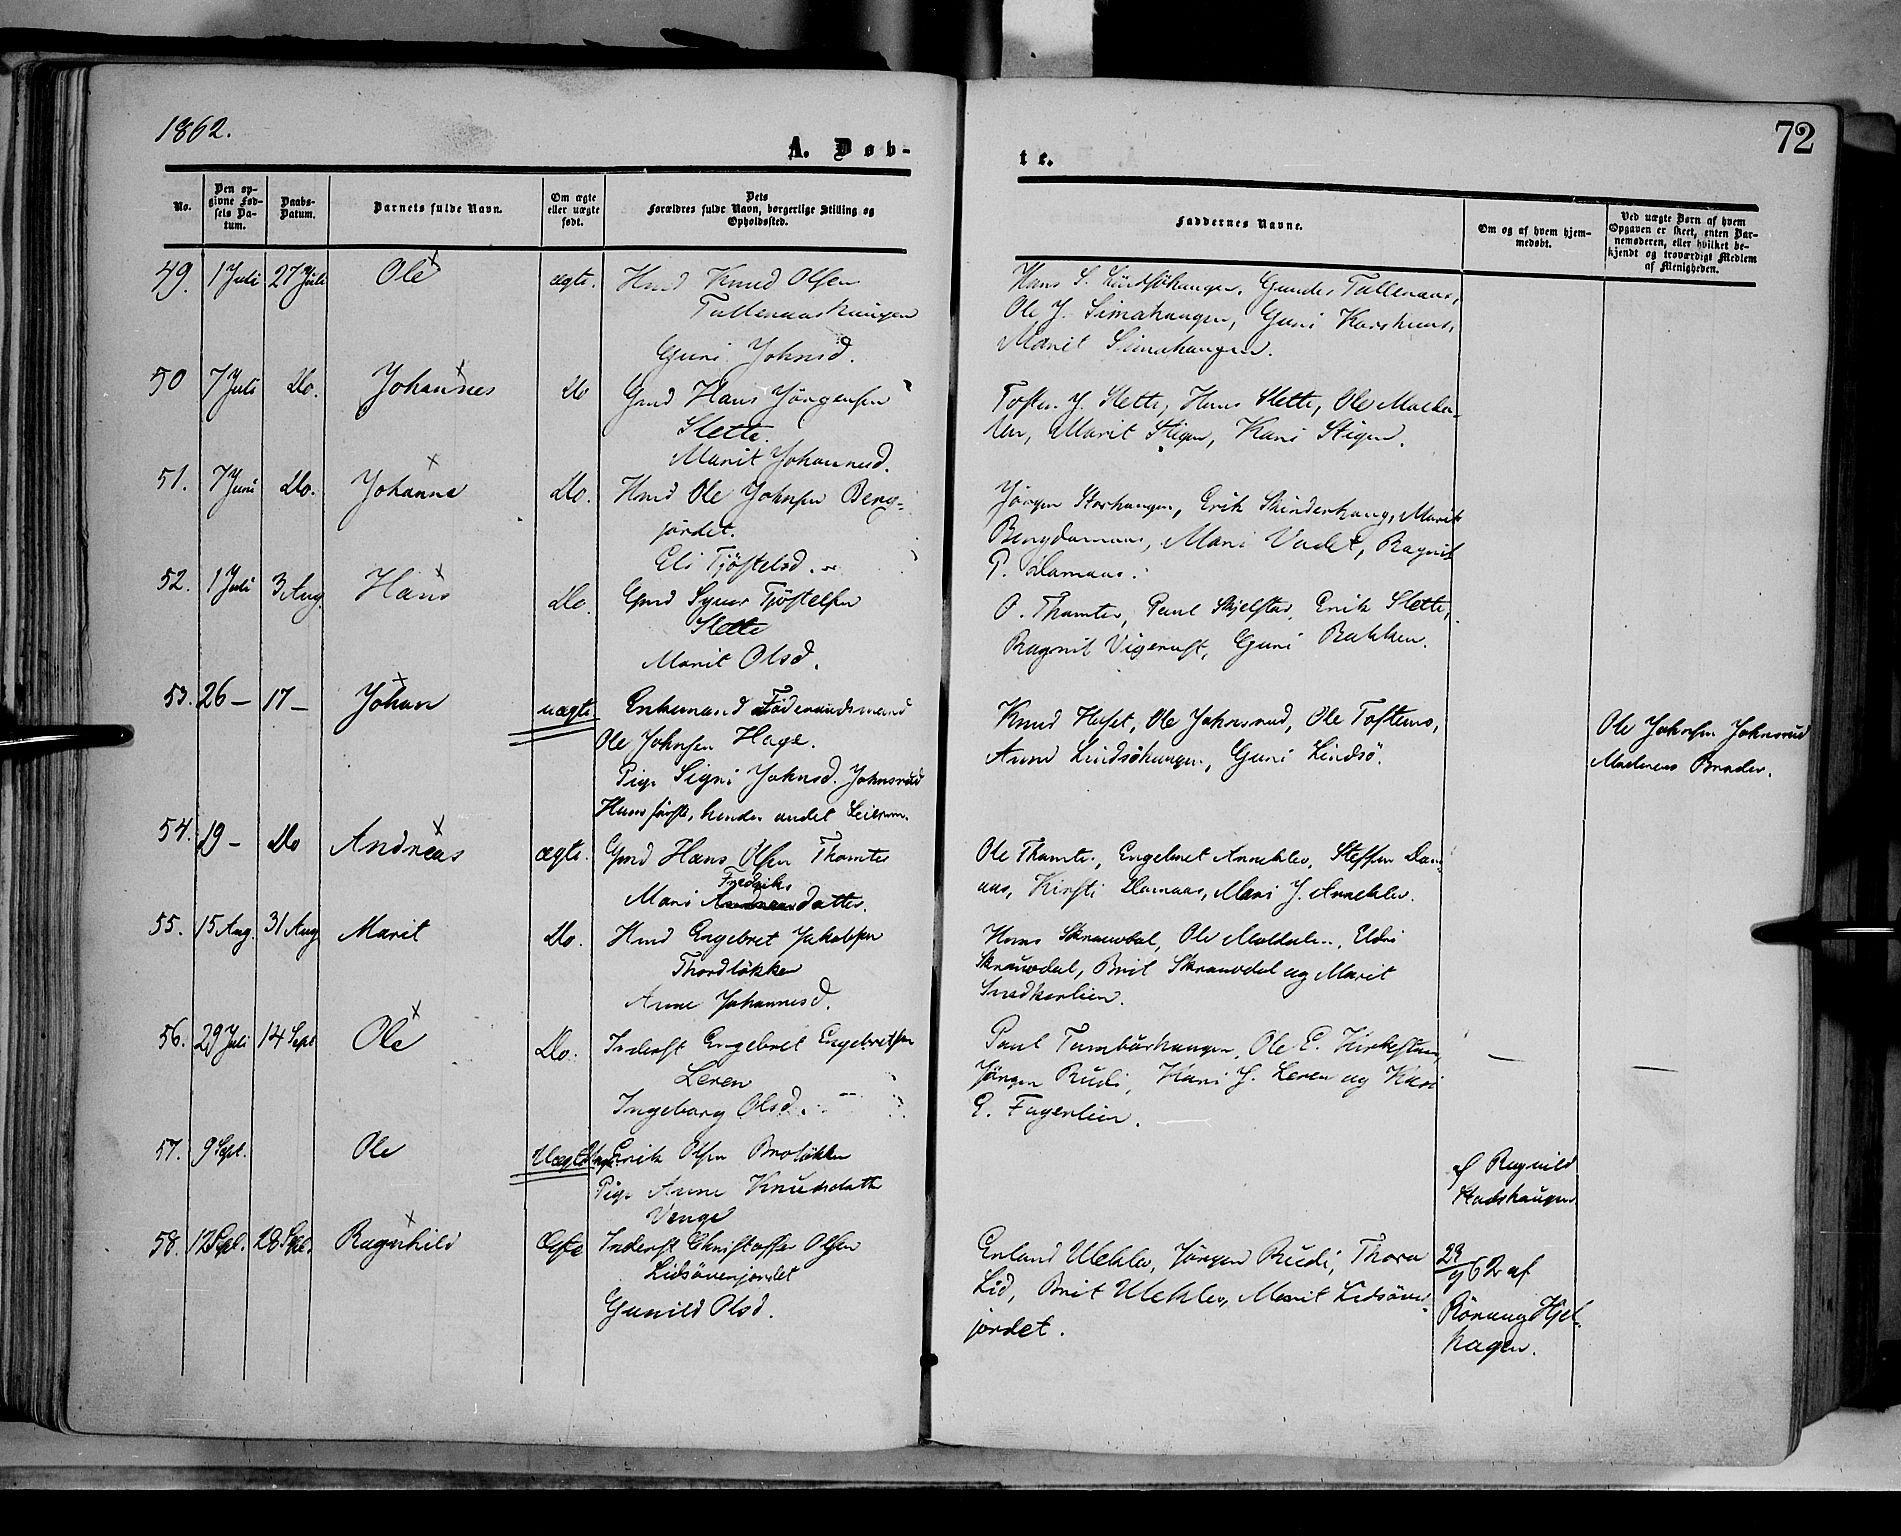 1862.
A. Døb-
te.
72
No.
Den op-
givne Fød-
sels Da-
tum.
Daabs-
Datum.
Barnets fulde Navn.
Om ægte
eller uægte
født.
Dets
Forældres fulde Navn, borgerlige Stilling og
Opholdssted.
Faddernes Navne.
Om og af hvem hjem-
medøbt.
Ved uægte Børn af hvem
Opgaven er skeet, enten Bar-
nemoderen, eller hvilket be-
kjendt og troværdigt Medlem
af Menigheden.
49. 1 Juli 27 Juli Ole ægte. Hmd Knud Olsen
Tullenaashaugen
Guri Johnsd.
Hans S. Lindsøhaugen, Gunder Tullenaas,
Ole J. Simahaugen, Guri
Marit Simahaugen.
50 7 Juli Do. Johannes Do Gmd Hans Jørgensen
Slette.
Marit Johannesd.
Tosten J. Slette, Hans Slette, Ole
Marit Stigen, Kari Stigen.
51. 7 Juni Do. Johanne Do. Hmd Ole Johnsen Berg-
jordet.
Eli Tjøstelsd.
Jørgen Storhaugen, Erik Skinderhaug, Marit
Mari Vadet, Ragnil
P. Damaas.
52. 1 Juli 3 Aug. Hans Do. Gmd Syver Tjøstelsen
Slette
Marit Olsd.
O. Thomte, Paul Skjelstad, Erik Slette,
Ragnil Vigerust, Guri Bakken.
53. 26 – 17 – Johan uægte Enkemand Føderaadsmand
Ole Johnsen Hage.
Pige Signi Johnsd. Johnsrud
Hans første, hendes andet Leierm.
Knud Huset, Ole Johnsrud, Ole Toftemo,
Anne Lindsøhaugen, Guri Lindsø.
Ole Johnsen Johnsrud
Moderens Broder.
54. 19 – Do Andreas ægte. Gmd Hans Olsen Thomte
Fredriks
Mari datter.
Ole Thomte, Engebret Anneklev, Steffen Dam-
aas, Kirsti Damaas, Mari J. Anneklev.
55. 15 Aug. 31 Aug Marit Do. Hmd Engebret Jakobsen
Thordløkken
Anne Johannesd.
Hans Skrauvdal, Ole Moldalen, Eldri
Skrauvdal, Brit Skrauvdal og Marit
Snedkerlien.
56. 29 Juli 14 Sept Ole Do. Inderst Engebret Engebretsen
Leren
Ingeborg Olsd.
Paul Tambürhaugen, Ole E. Kirkestuen
Jørgen Rudi, Kari J. Leren og Kari
E. Fagerlien.
57. 9 Sept. Ole Uægte Ungk. Erik Olsen Broløkken
Pige Anne Knudsdatter
Venge
af Ragnild
Stadshaugen
58. 12 Sept. 28 Sept. Ragnhild Ægte Inderst Christoffer Olsen
Lidsøverjordet
Gunild Olsd.
Erland Uleklev, Jørgen Rudi, Thora
Lid, Brit Uleklev, Marit Lidsøver-
jordet.
23/9 62 af
Rønnaug Hjel-
hagen.